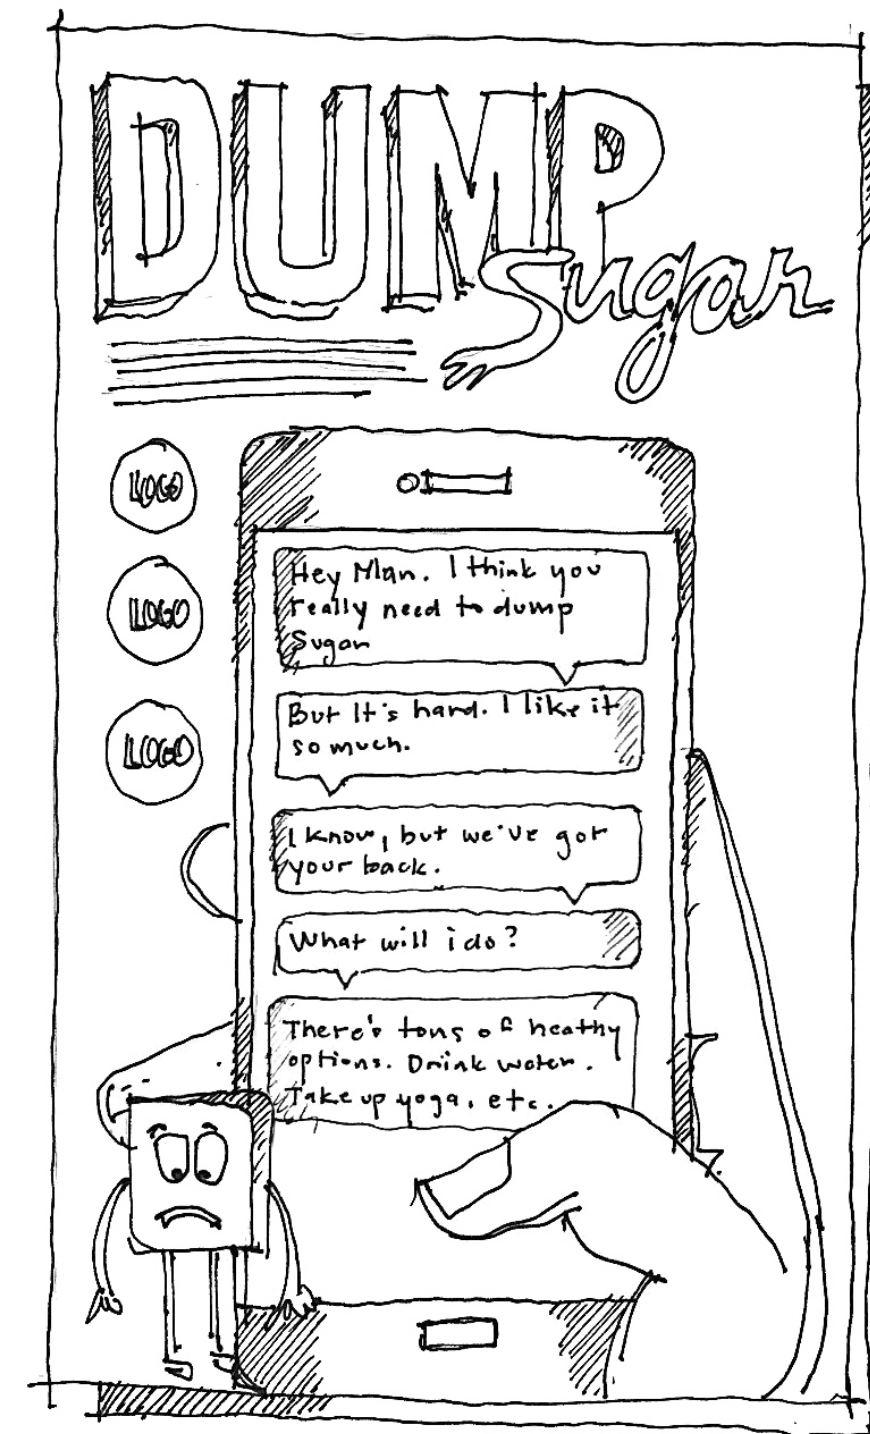 DUMP
Sugar
LOGO
LOGO
LOGO
Hey Man. I think you
really need to dump
Sugar
But It's hard. I like it
so much.
I know, but we've got
your back.
What will i do?
There's tons of heathy
options. Drink water.
Take up yoga. etc.